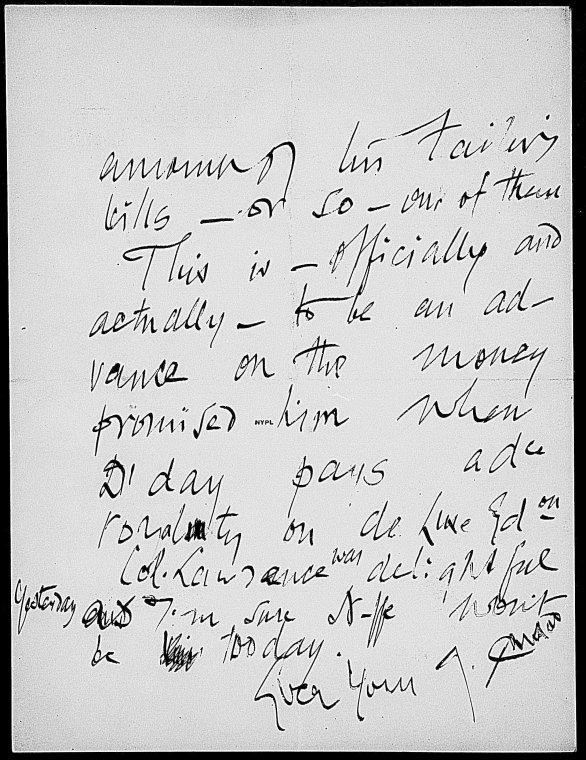 amount of his Tailor's
bills — or so — one of them
This is — officially and
actually — to be an ad-
vance on the money
promised NYPL him when
D'day pays
royalty on de Luxe Edon
Col. Lawrence was delightful
Yesterday and I'm sure won't
be today.
Ever Yours J. Conrad